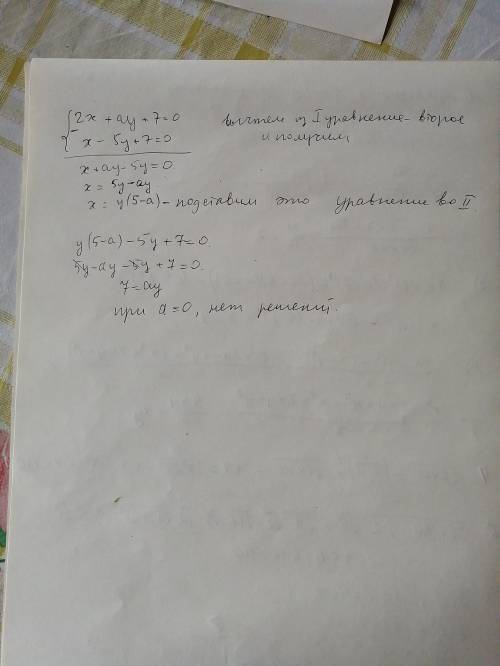 {2x + ay + 7 = 0 вычтем из I уравнение - второе
x - 5y + 7 = 0 и получим,
x + ay - 5y = 0.
x = 5y - ay
x = y(5-a) - подставим это уравнение во II.
y(5-a) - 5y + 7 = 0.
5y - ay - 5y + 7 = 0.
7 = ay
при a = 0, нет решений.